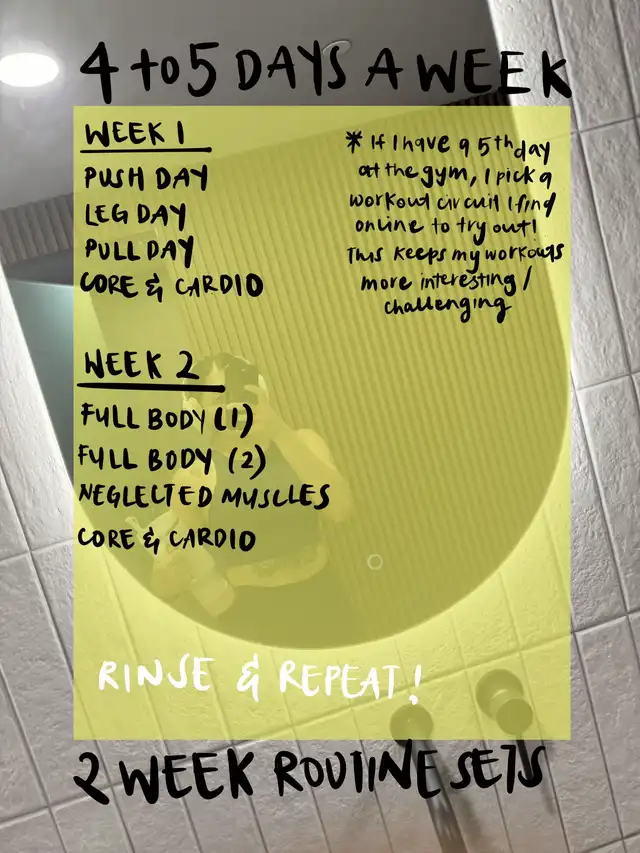 4 to 5 DAYS A WEEK
WEEK 1
PUSH DAY
LEG DAY
PULL DAY
CORE & CARDIO
* If I have a 5th day
at the gym, I pick a
workout circuit I find
online to try out!
This keeps my workouts
more interesting /
challenging
WEEK 2
FULL BODY (1)
FULL BODY (2)
NEGLECTED MUSCLES
CORE & CARDIO
RINSE & REPEAT!
2 WEEK ROUTINE SETS